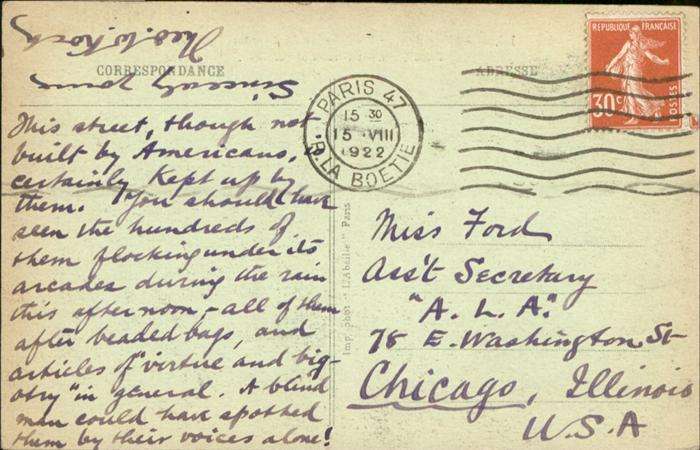 CORRESPONDANCE
This street, though not
built by Americans, is
certainly kept up by
them. You should have
seen the hundreds of
them flocking under its
arcades during the rain
this afternoon – all of them
after beaded bags, and
articles of "virtue and big-
otry" in general. A blind
man could have spotted
them by their voices alone!
Sincerely yours
Theo. W. Koch
Imp. Phot. "L'Abeille" Paris
ADRESSE
REPUBLIQUE FRANÇAISE
30c
POSTES
PARIS 47
15 30
15 VIII
1922
R. LA BOETIE
Miss Ford
Ass't Secretary
"A. L. A."
78 E. Washington St
Chicago, Illinois
U.S.A